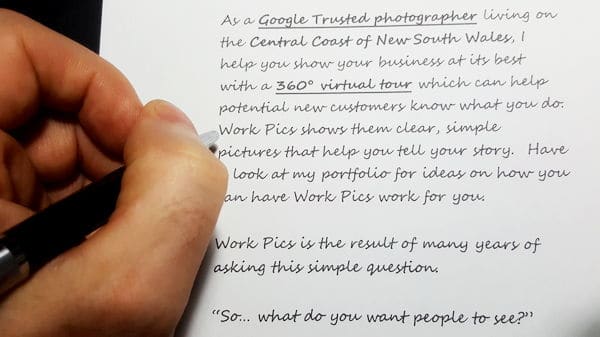 As a Google Trusted photographer living on
the Central Coast of New South Wales, I
help you show your business at its best
with a 360° virtual tour which can help
potential new customers know what you do.
Work Pics shows them clear, simple
pictures that help you tell your story. Have
look at my portfolio for ideas on how you
have Work Pics work for you.
Work Pics is the result of many years of
asking this simple question.
“So... what do you want people to see?”